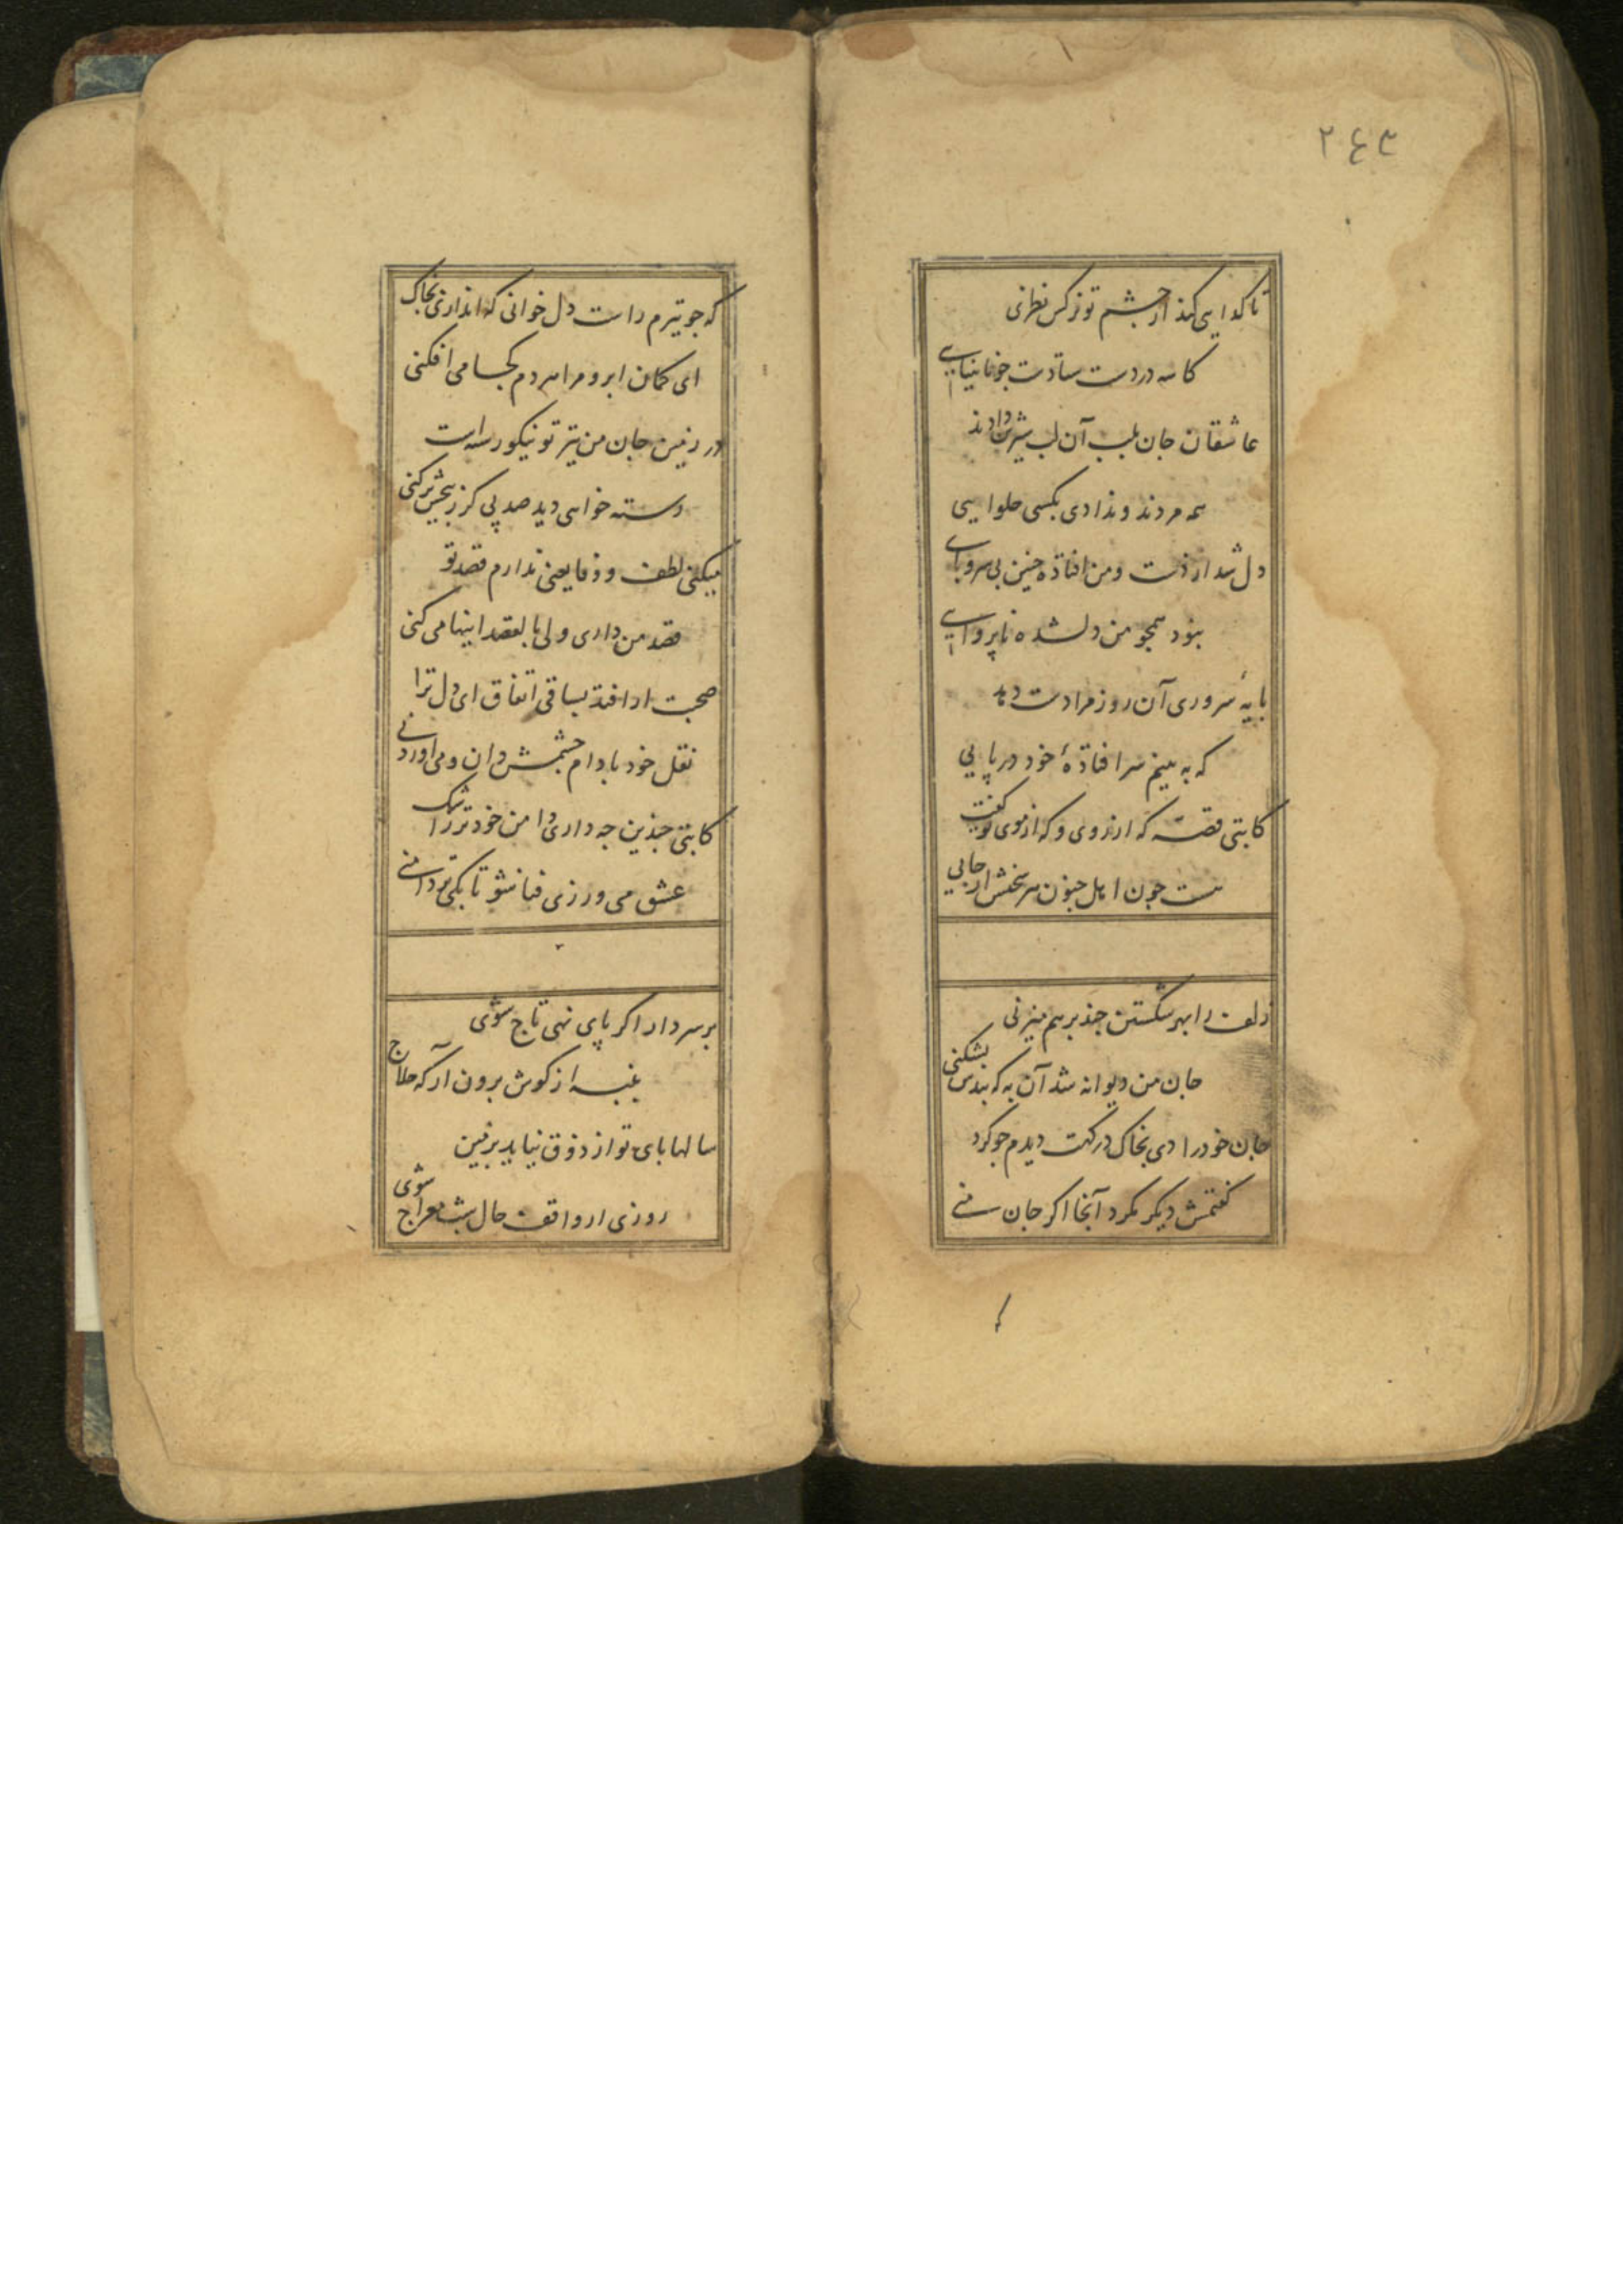 ۲۴۳
تا کدایی کند از چشم تو نرکس نظری
کاسه در دست ستادست جو نابینایی
عاشقان جان بلب آن لب شیرین دادند
همه مردند و ندادی بکسی حلوایی
دل شد از دست و من افتاده جنین بی سر و پای
نبود همجو من دلشده ناپروایی
پایهٔ سروری آن روز مرا دست دهد
که به بینم سر افتادهٔ خود در پایی
کاتبی قصه که از روی و که از موی تو کفت
هست جون اهل جنون هر سخنش از جایی
زلف را بهر شکستن جند برهم میزنی
جان من دیوانه شد آن به که بندش بشکنی
جان خود را دی بخاک درکهت دیدم جو کرد
کفتمش دیکر مکرد آنجا اکر جان منی
که جو تیرم راست دل خوانی که اندازی بخاک
ای کمان ابرو مرا هر دم کجا می افکنی
در زمین جان من تیر تو نیکو رسته است
دسته خواهی دید صد پی کز بیخش برکنی
میکنی لطف و وفا یعنی ندارم قصد تو
قصد من داری ولی بالقصد اینها می کنی
صحبت ار افتد بساقی اتفاق ای دل ترا
نقل خود بادام چشمش دان و می
کاتبی جندین جه داری دامن خود تر ز اشک
عشق می ورزی فنا شو تا بکی تر دامنی
بر سر دار اکر پای نهی تاج شوی
پنبه از کوش برون آر که حلاج شوی
سالها پای تو از ذوق نیاید بزمین
روزی ار واقف حال شب معراج